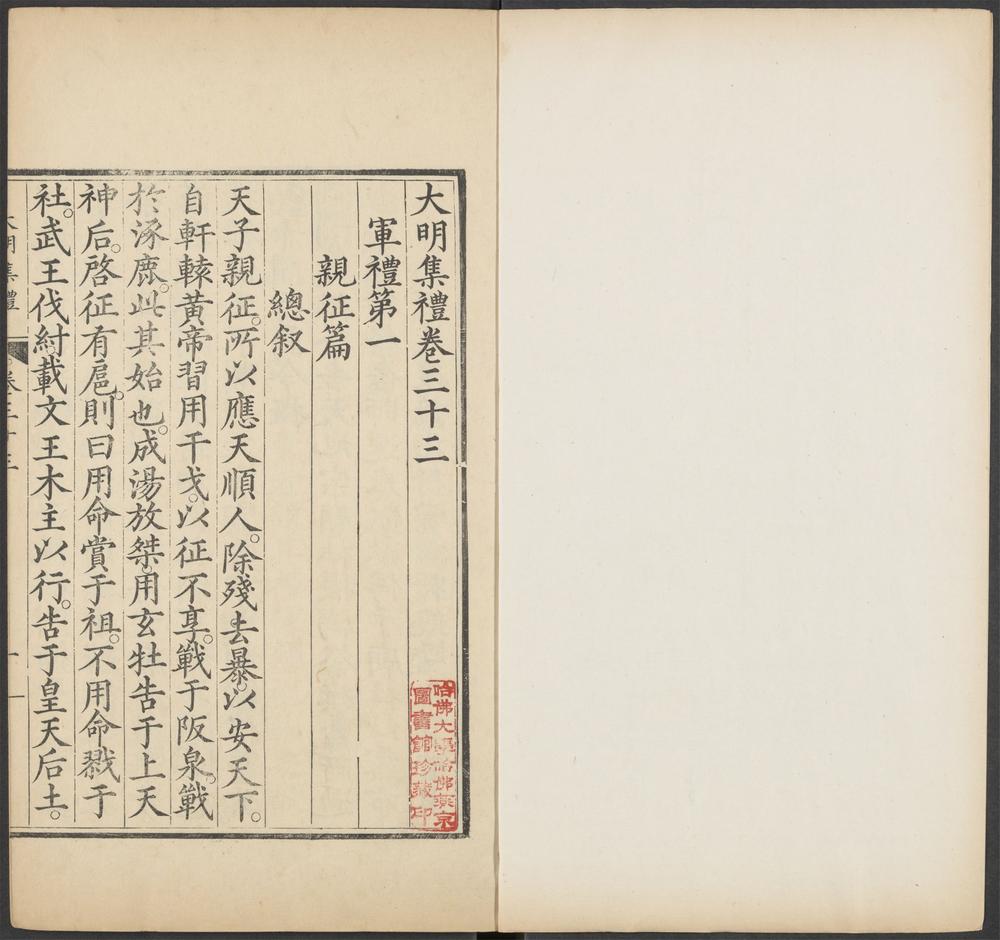 大明集禮卷三十三
軍禮第一
親征篇
總叙
天子親征。所以應天順人。除殘去暴。以安天下。
自軒轅黃帝習用干戈。以征不享。戰于阪泉。戰
於涿鹿。此其始也。成湯放桀。用玄牡告于上天
神后。啓征有扈。則曰用命賞于祖。不用命戮于
社。武王伐紂。載文王木主以行。告于皇天后土。
大明集禮 卷三十三 一
哈佛大學哈佛燕京
圖書館珍藏印